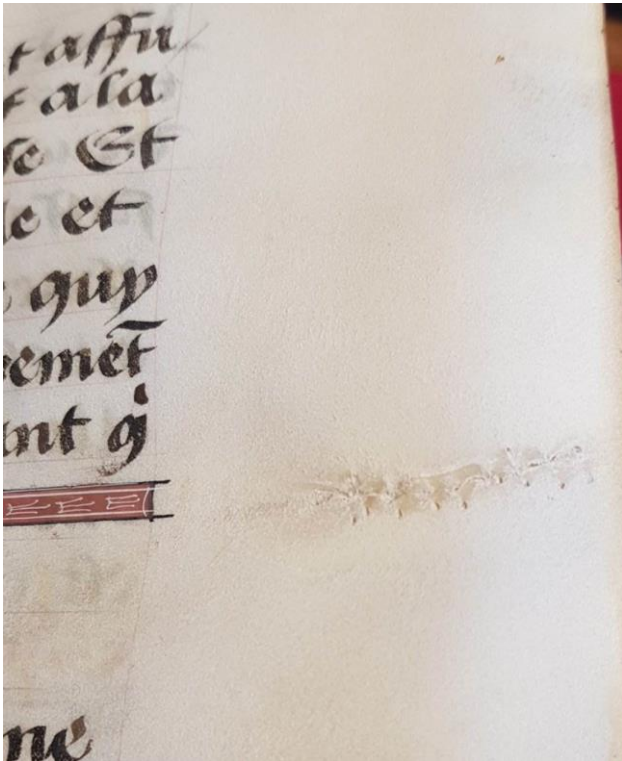 t assu
t a la
se Et
le et
quy
emēt
ant q̇
ne